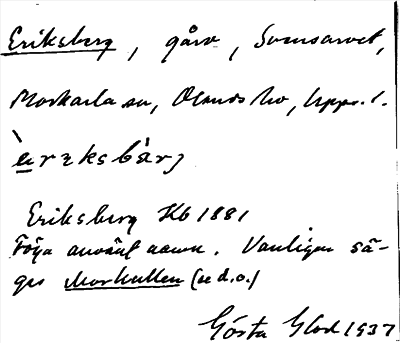 Eriksberg, gård, Svensarvet,
Morkarla sn, Olands hd, Upps. l.
Eriksberg Hb 1881
Föga använt namn. Vanligen sä-
ges Morkullen (se d.o.)
Gösta Glad 1937